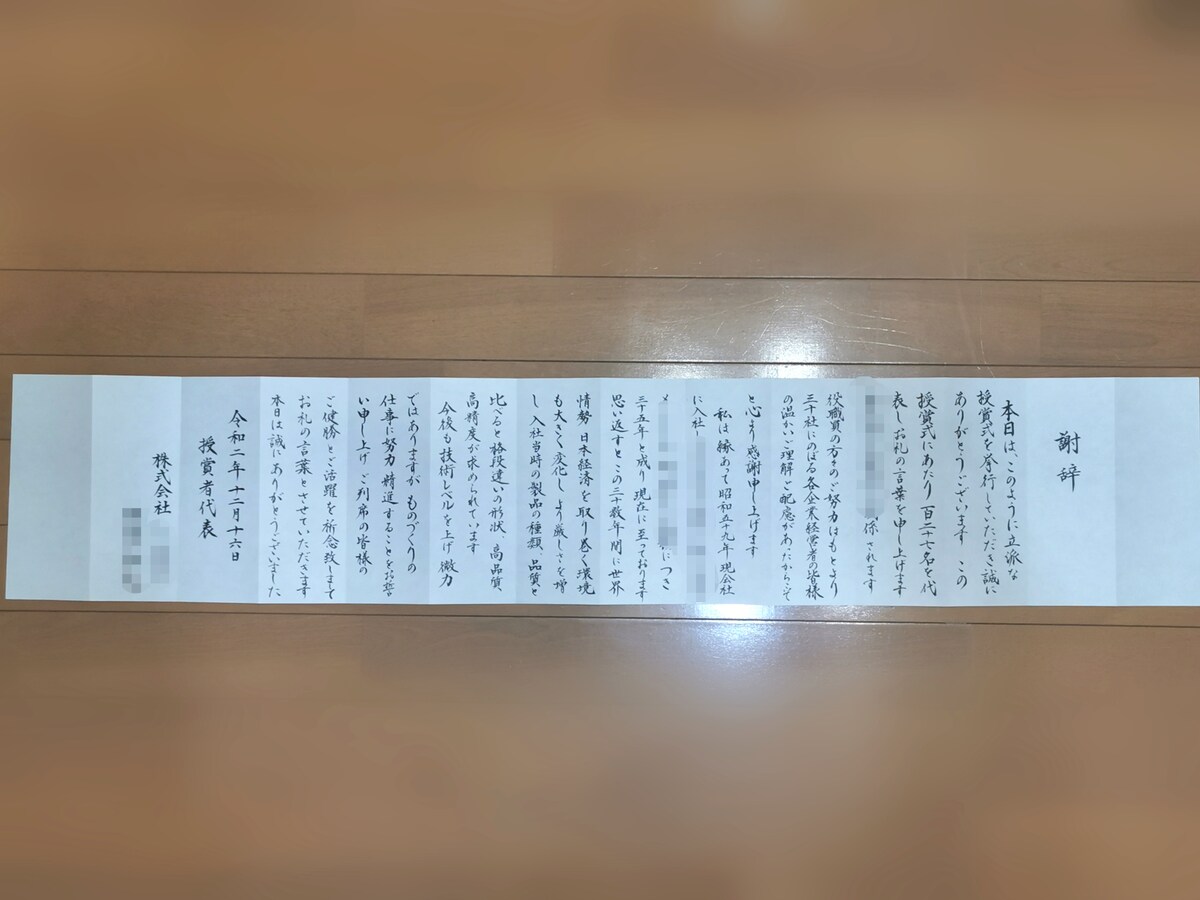 謝辞
本日は、このように立派な
授賞式を挙行していただき誠に
ありがとうございます この
授賞式にあたり 百二十七名を代
表しお礼の言葉を申し上げます
係されます
役職員の方々のご努力はもとより
三十社にのぼる各企業経営者の皆様
の温かいご理解ご配慮があったからこそ
と心より感謝申し上げます
私は縁あって昭和五十九年 現会社
に入社し
メ につき
三十五年と成り 現在に至っております
思い返すとこの三十数年間に世界
情勢 日本経済を取り巻く環境
も大きく変化し より厳しさを増
し 入社当時の製品の種類、品質と
比べると格段違いの形状、高品質
高精度が求められています
今後も技術レベルを上げ 微力
ではありますが ものづくりの
仕事に努力 精進することをお誓
い申し上げ ご列席の皆様の
ご健勝とご活躍を祈念致しまして
お礼の言葉とさせていただきます
本日は誠にありがとうございました
令和二年十二月十六日
授賞者代表
株式会社